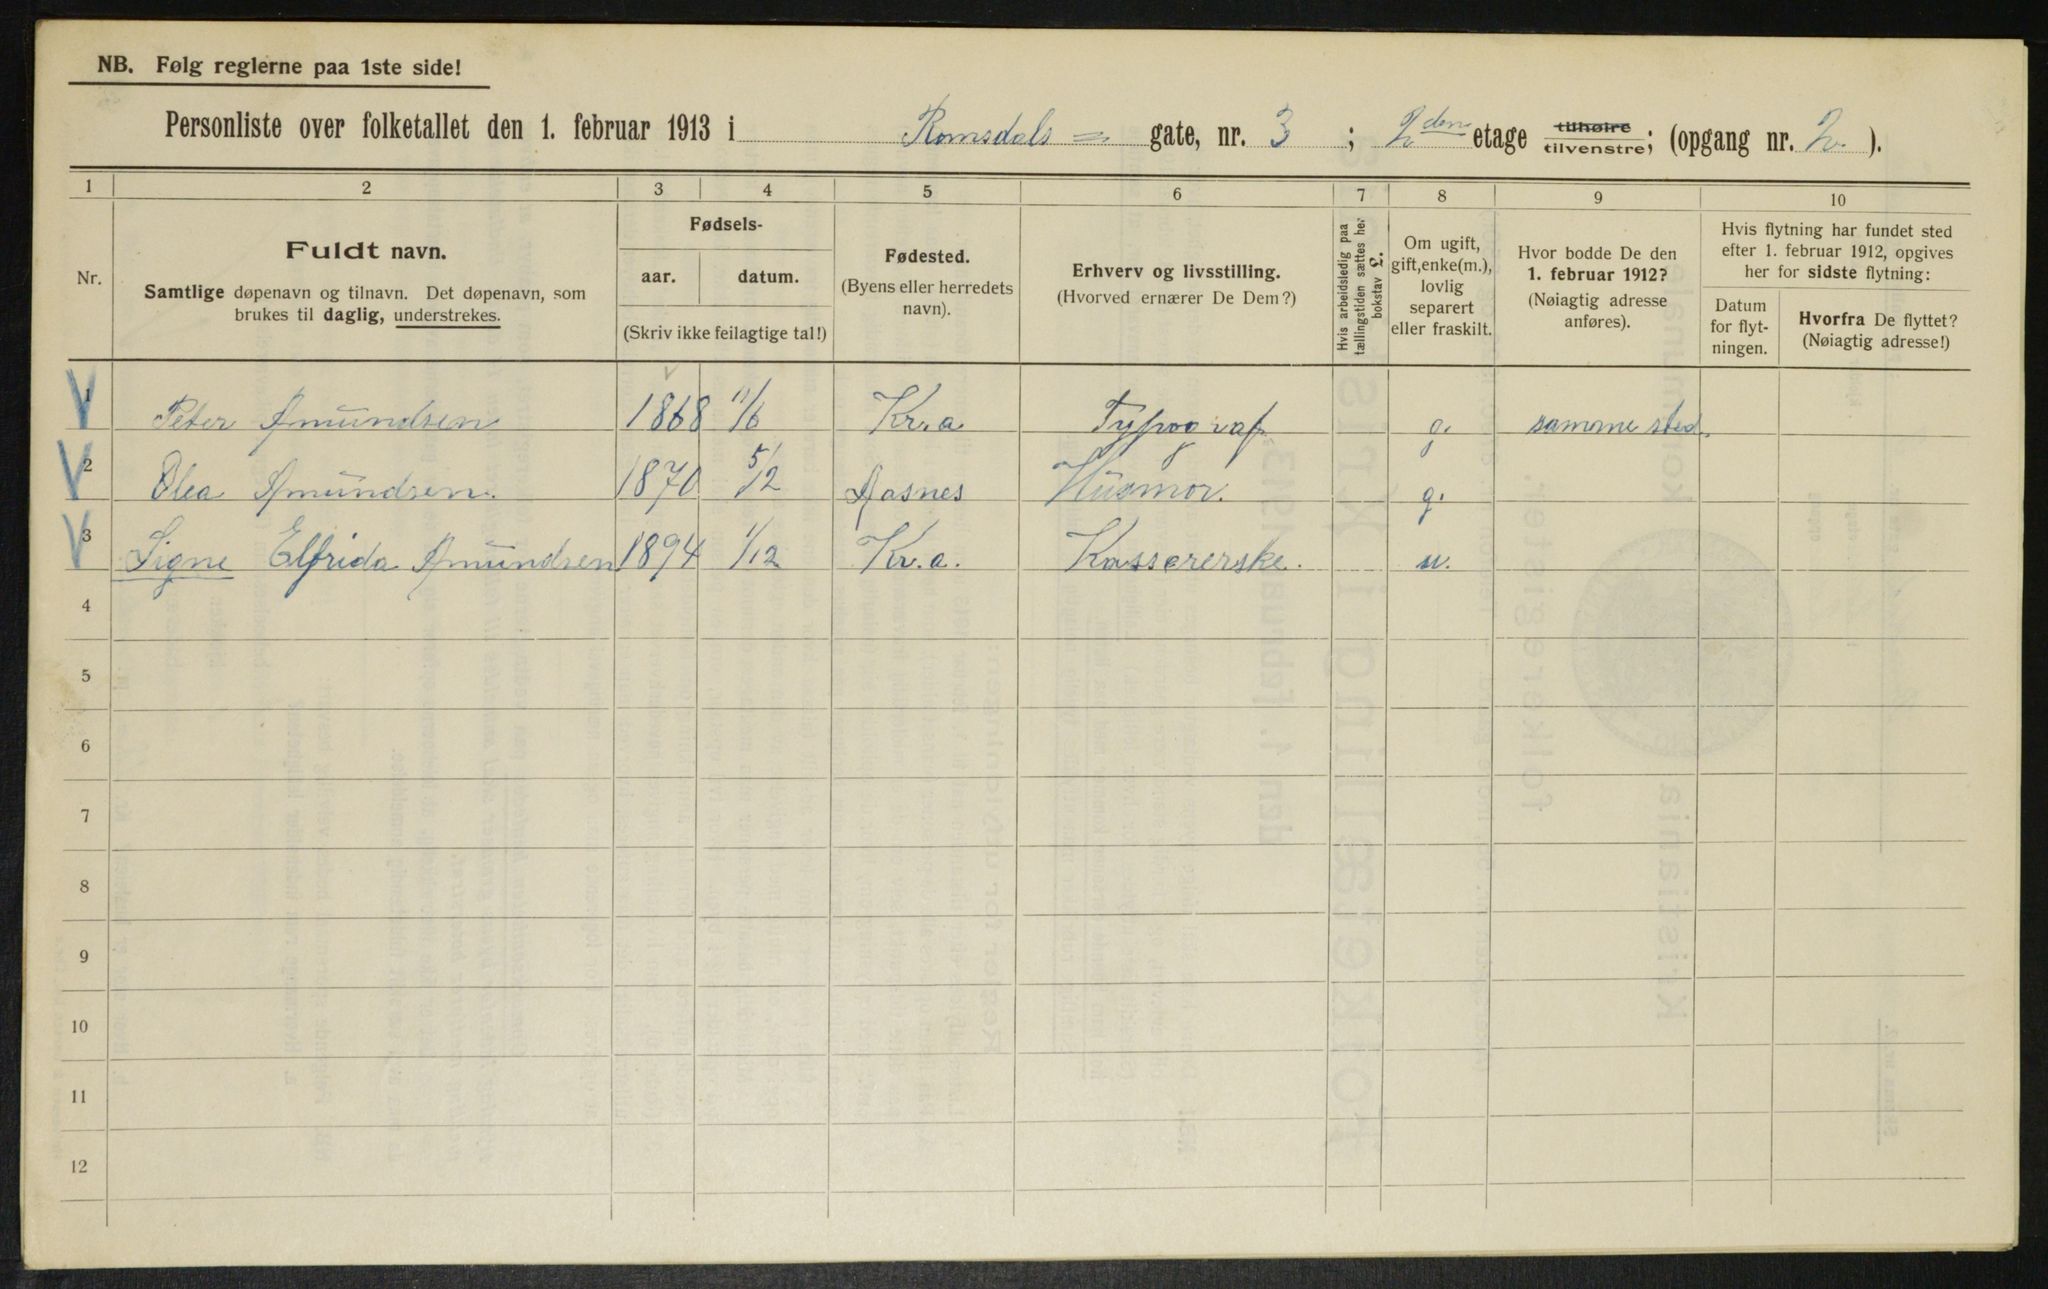 NB. Følg reglerne paa 1ste side!
Personliste over folketallet den 1. februar 1913 i Romsdals= gate, nr. 3 ; 2den etage tilhøire tilvenstre; (opgang nr. 2. ).
1 2 3 4 5 6 7 8 9 10
Nr.
Fuldt navn.
Samtlige døpenavn og tilnavn. Det døpenavn, som
brukes til daglig, understrekes.
Fødsels-
aar. datum.
(Skriv ikke feilagtige tal!)
Fødested.
(Byens eller herredets
navn).
Erhverv og livsstilling.
(Hvorved ernærer De Dem?)
Hvis arbeidsledig paa
tællingstiden sættes her
bokstav L.
Om ugift,
gift, enke(m.),
lovlig
separert
eller fraskilt.
Hvor bodde De den
1. februar 1912?
(Nøiagtig adresse
anføres).
Hvis flytning har fundet sted
efter 1. februar 1912, opgives
her for sidste flytning:
Datum
for flyt-
ningen.
Hvorfra De flyttet?
(Nøiagtig adresse!)
1 Peter Amundsen 1868 11/6 Kr.a Typograf g. samme sted.
2 Olea Amundsen. 1870 5/2 Aasnes Husmor. g.
3 Signe Elfrida Amundsen 1894 1/12 Kr.a. Kassererske. u.
4
5
6
7
8
9
10
11
12